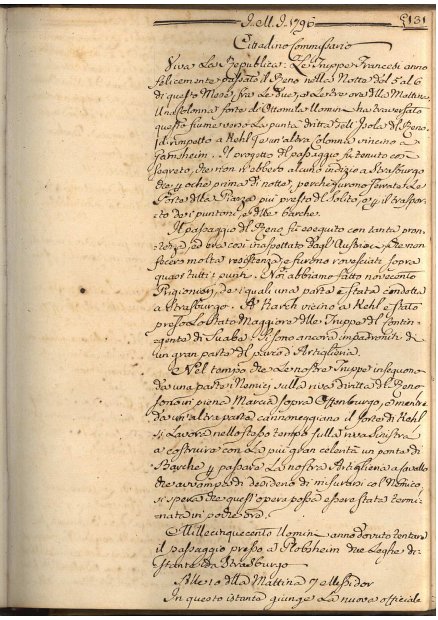 J. M. J. 1796
131
Cittadino Commissario
Viva La Republica: Le Truppe Francesi anno
felicemente passato il Reno nella Notte del 5 al 6
di questo Mese, fra Le due, e Le tre ore della Mattina
Una Colonna forte di Ottomila Uomini ha traversato
questo fiume verso La punta dritta dell Isola del Reno
dirimpetto a Kehl, e un'altra Colonna vicino a
Gamsheim. Il progetto del passaggio fu tenuto così
segreto, che non n'ebbero alcuno indizio a Strasburgo
che poche ore prima di notte, perche furono serrate Le
Porte della Piazza più presto del Solito, per il traspor
to de i puntoni, e delle barche.
Il passaggio del Reno fu eseguito con tanta pron
tezza, ed era così inaspettato dagl'Austriaci, che non
fecero molta resistenza, e furono rovesciati sopra
quasi tutti i punti. Noi abbiamo fatto novecento
Prigionieri, de i quali una parte è stata condotta
a Strasburgo. A Karch vicino a Kehl è stato
preso Lo Stato Maggiore delle Truppe del Contin
gente di Suabia. Si sono ancora impadroniti di
un gran parte del parco d'Artiglieria.
Nel tempo che Le nostre Truppe inseguono
da una parte i Nemici sulla riva diritta del Reno
sono in piena Marcia sopra Offenburgo, e mentre
da un'altra parte cannoneggiano il forte di Kehl
si Lavora nello stesso tempo sulla riva sinistra
a costruire con La più gran celerità un ponte di
Barche per passare La nostra Artiglieria a Cavallo
che avvampa di desiderio di misurarsi col Nemico,
si spera che quest'opera possa essere stata termi
nata in poche ore.
Mille cinquecento Uomini anno dovuto tentare
il passaggio presso a Plobsheim due Leghe di
stante da Strasburgo
Alle 10 della Mattina 7 Messidor
In questo istante giunge La nuova officiale